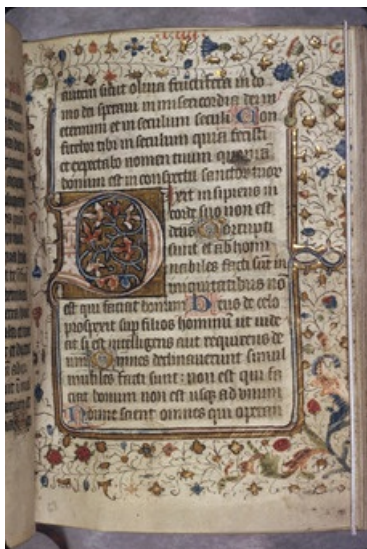 autem sicut oliva fructifera in do
mo dei speravi in misericordia dei in
eternum et in seculum seculi Con
fitebor tibi in seculum quia fecisti
et expectabo nomen tuum quoniā
bonum est in conspectu sanctorum
Dixit insipiens in
corde suo non est
deus Corrupti
sunt et abhomi
nabiles facti sūt in
iniquitatibus nō
est qui faciat bonum Deus de celo
prospexit sup filios hominū ut vide
at si est intelligens aut requirens de
um Omnes declinaverunt simul
inutiles facti sunt: non est qui fa
ciat bonum non est usq ad unum
Nonne scient omnes qui operan